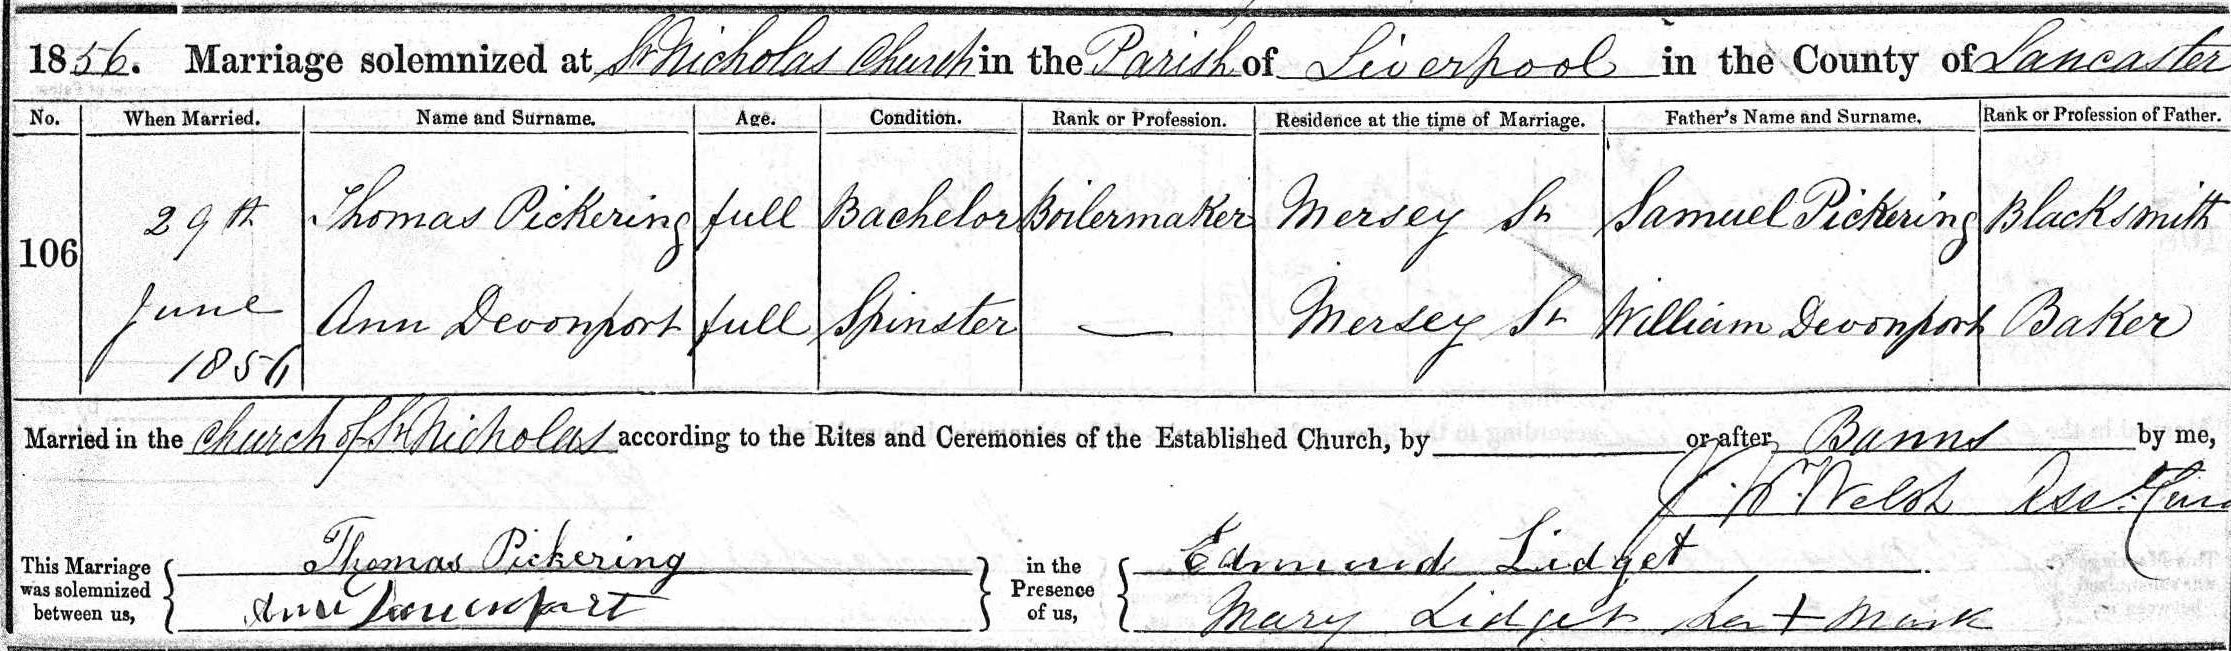 1856. Marriage solemnized at St Nicholas Church in the Parish of Liverpool in the County of Lancaster
No. When Married. Name and Surname. Age. Condition. Rank or Profession. Residence at the time of Marriage. Father's Name and Surname. Rank or Profession of Father.
29th Thomas Pickering full Bachelor Boilermaker Mersey St Samuel Pickering Blacksmith
106
June Ann Devonport full Spinster — Mersey St William Devonport Baker
1856
Married in the Church of St Nicholas according to the Rites and Ceremonies of the Established Church, by or after Banns by me,
J. W. Welsh Ass.
This Marriage was solemnized between us, Thomas Pickering in the Presence of us, Edmund Lidget
Ann Mary Lidget her + mark